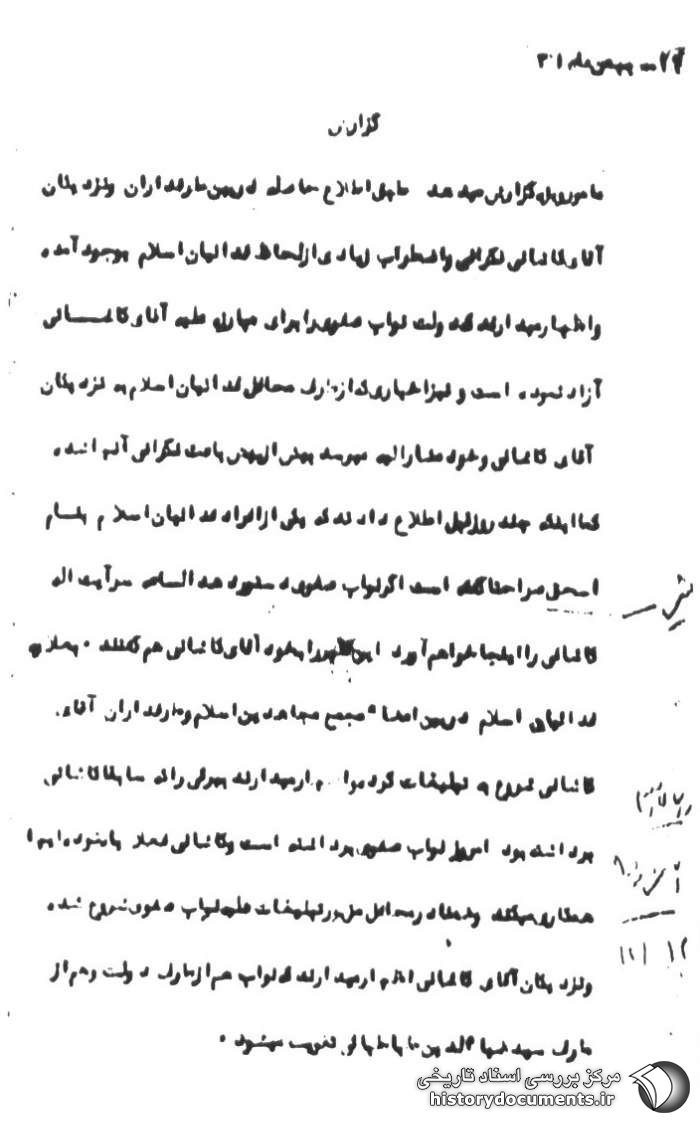 ۲۴ـ بهمن ماه ۳۰
گزارش
مامور ویژه گزارش میدهد طبق اطلاع حاصله در بین طرفداران و نزدیکان
آقای کاشانی نگرانی و اضطراب زیادی از لحاظ فدائیان اسلام بوجود آمده
و اظهار میدارند که دولت نواب صفوی را برای مبارزه علیه آقای کاشانی
آزاد نموده است و نیز اخباری که از طرف محافل فدائیان اسلام به نزدیکان
آقای کاشانی و خود مشارالیه میرسد بیش از پیش باعث نگرانی آنها شده
کما اینکه چند روز قبل اطلاع دادند که یکی از افراد فدائیان اسلام بنام
اسحق صراحتا گفته است اگر نواب صفوی دستور دهد الساعه سر آیت اله
کاشانی را اینجا خواهم آورد این را بخود آقای کاشانی هم گفتند . بعلاوه
فدائیان اسلام در بین اعضاء مجمع مجاهدین اسلام و طرفداران آقای
کاشانی شروع به تبلیغات کرده و اظهار میدارند بیرقی را که سابقا کاشانی
برداشته بود امروز نواب صفوی برداشته است و کاشانی فعلا با
همکاری میکند و متقابلا در محافل مزبور تبلیغات علیه نواب صفوی شروع شده
و نزدیکان آقای کاشانی اظهار میدارند که نواب هم از طرف دولت و هم از
طرف سید ضیاءالدین طباطبائی تقویت میشود .
مرکز بررسی اسناد تاریخی
historydocuments.ir